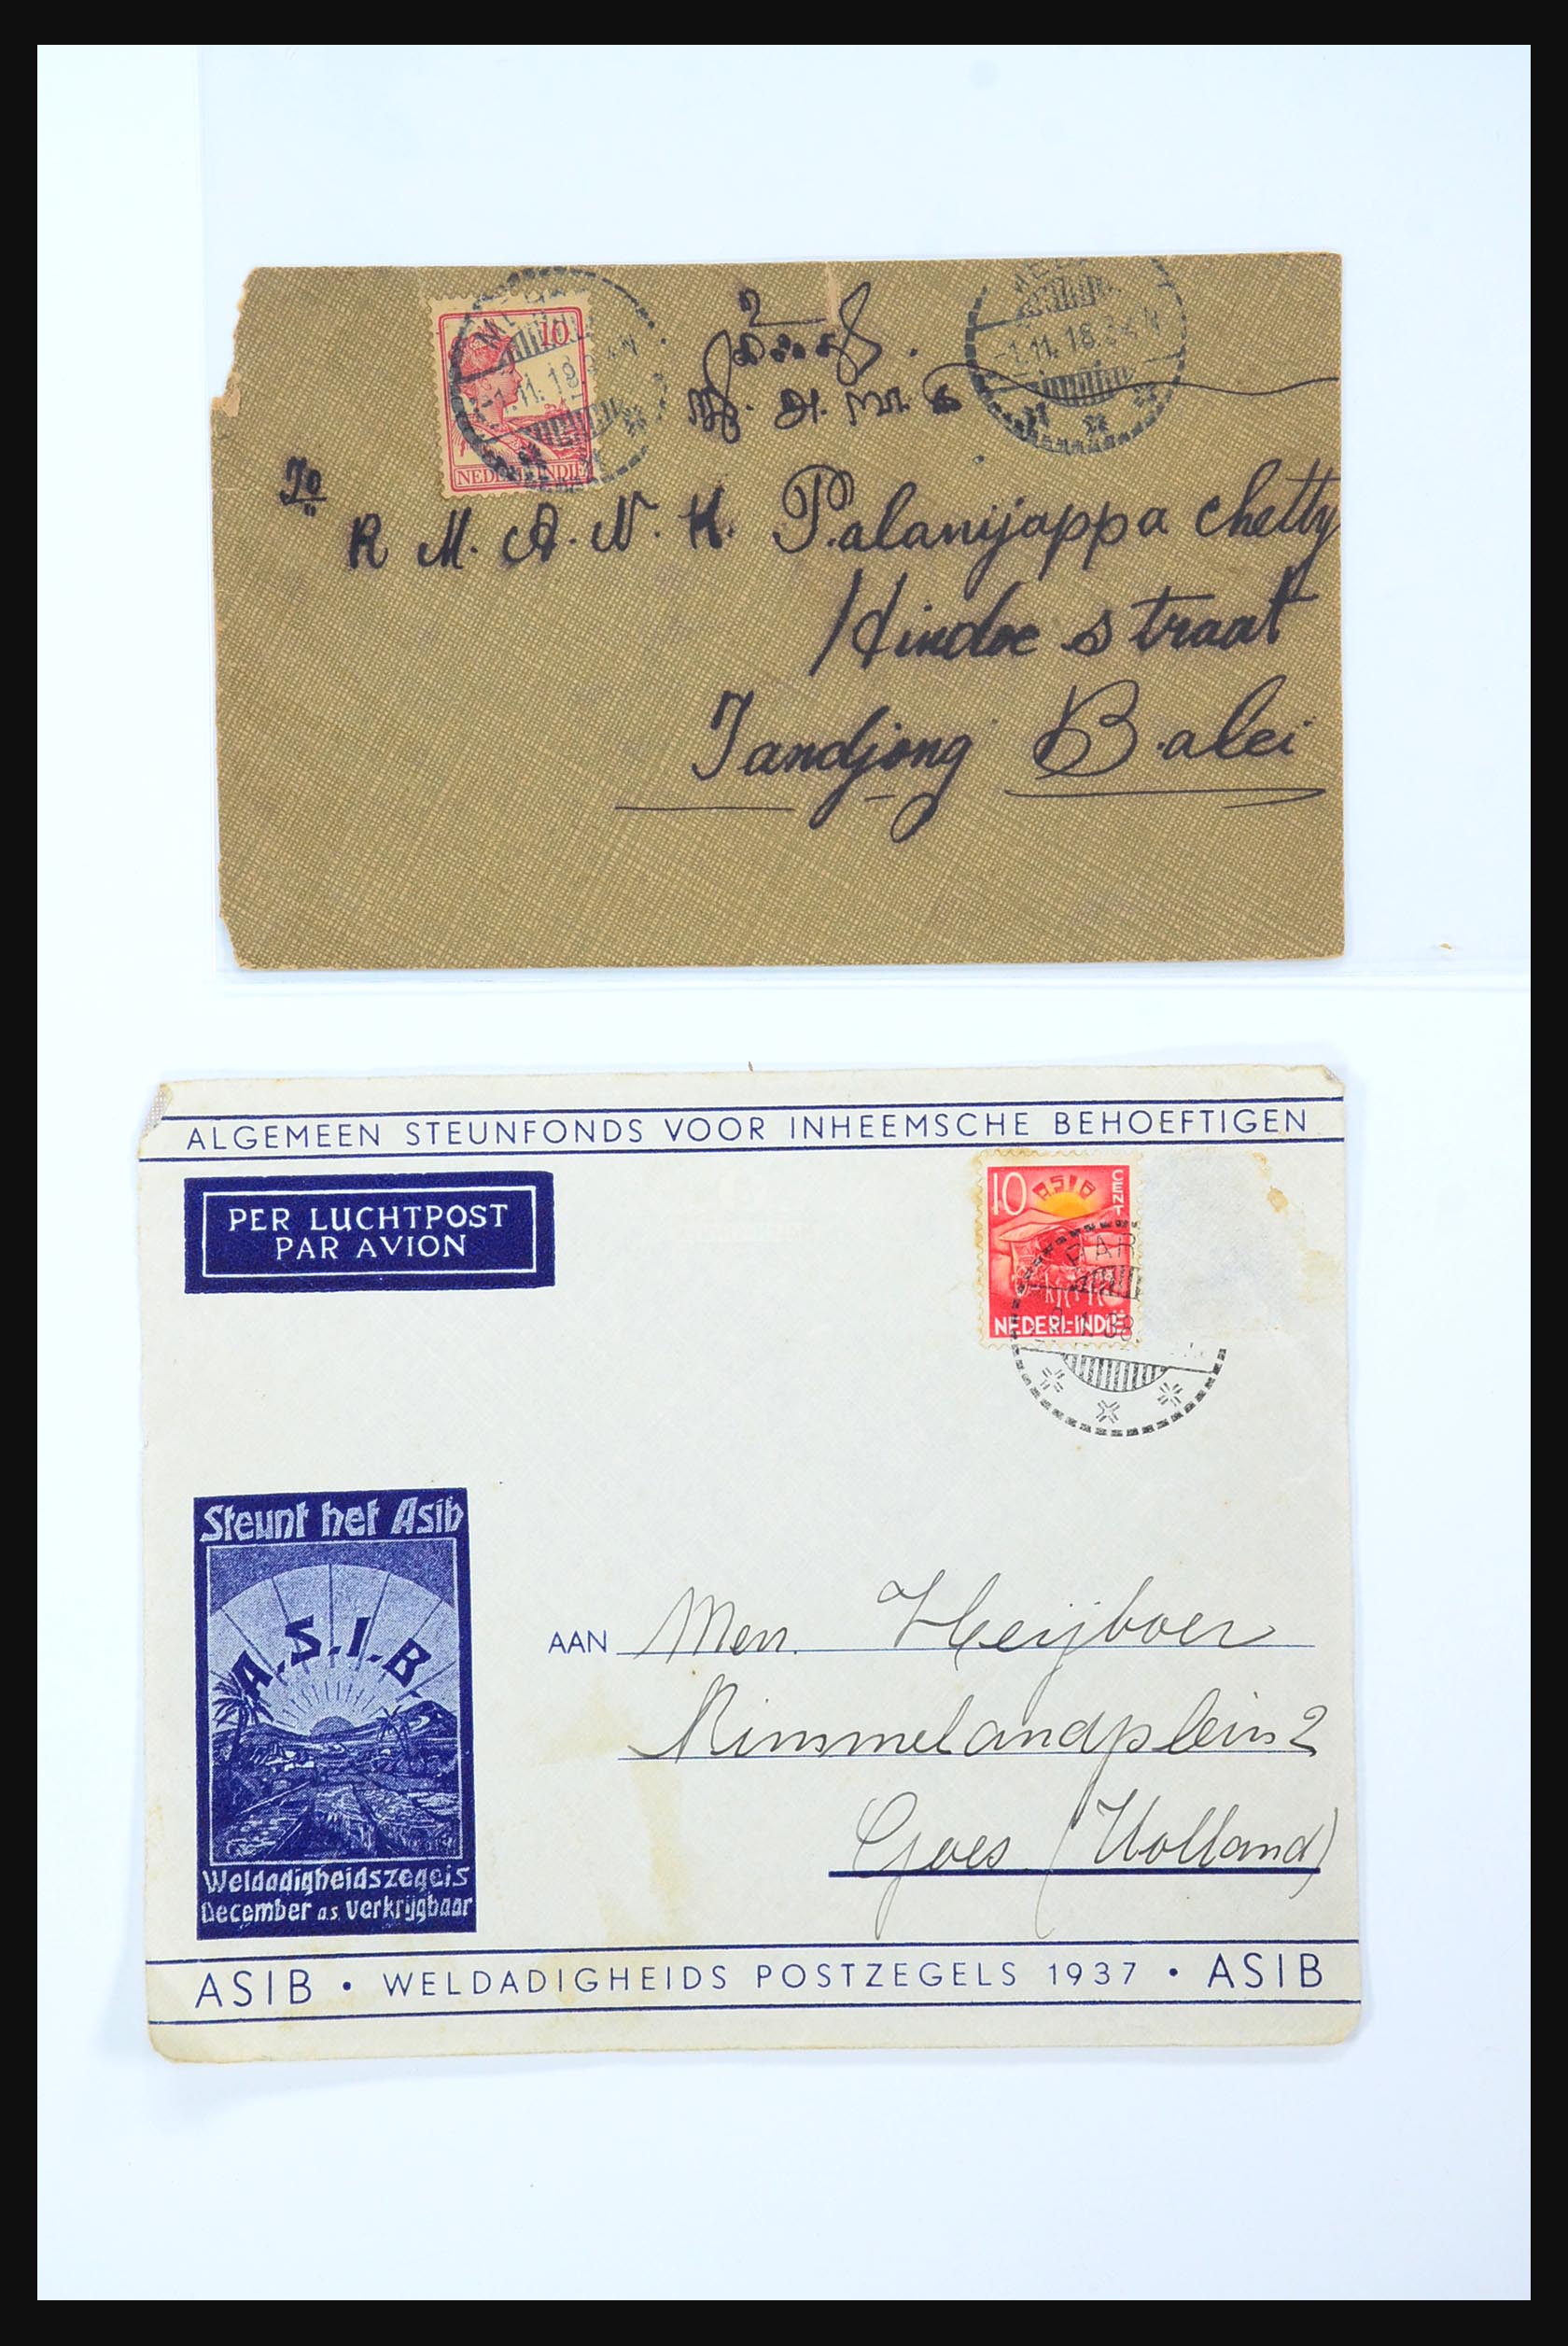 10
NEDERL. INDIE
1.11.18.3-4N
To
R M. A. N. K. Palanijappa chetty
Hindoe straat
Tandjong Balei
ALGEMEEN STEUNFONDS VOOR INHEEMSCHE BEHOEFTIGEN
PER LUCHTPOST
PAR AVION
10 ASIB CENT
NEDERL-INDIË
Steunt het Asib
A.S.I.B.
Weldadigheidszegels
December a.s. verkrijgbaar
AAN Men. Heijboer
Rimmelandplein 2
Goes (Holland)
ASIB • WELDADIGHEIDS POSTZEGELS 1937 • ASIB